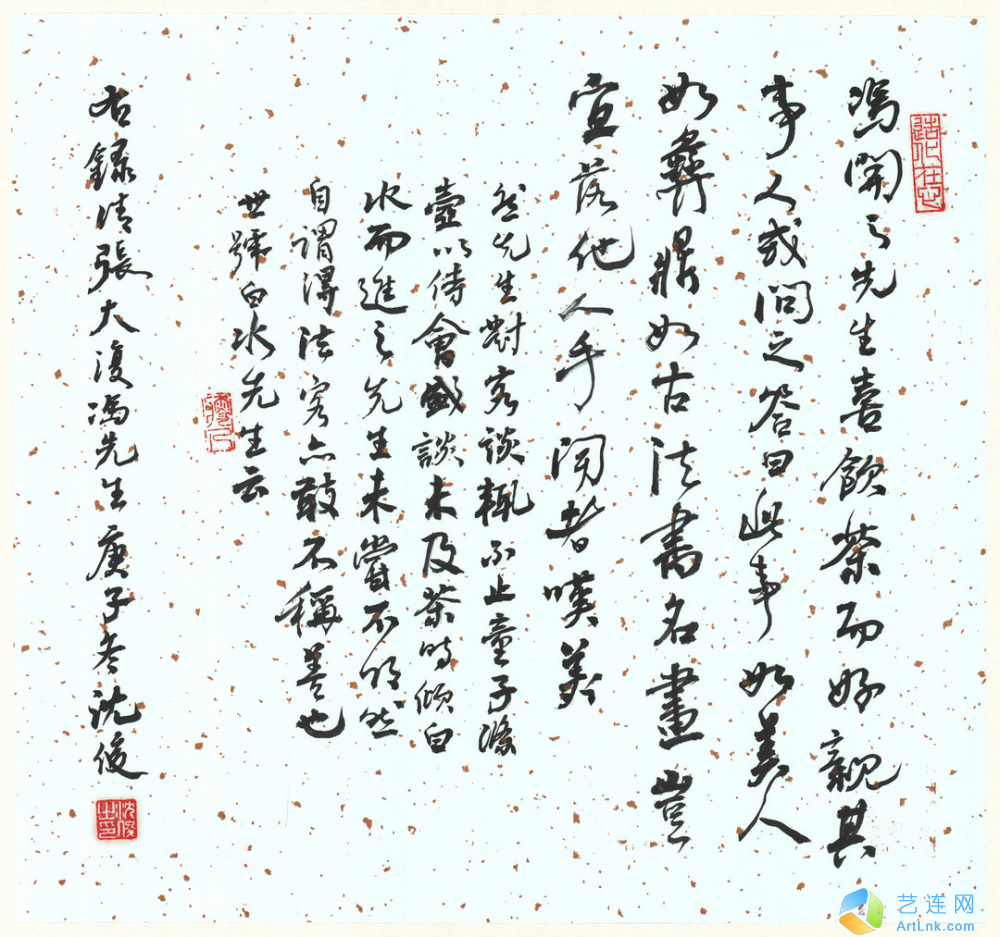 造化在心
馮開之先生喜飲茶而好親其
事人或問之答曰此事如美人
如彝鼎如古法書名畫豈
宜落他人手聞者嘆美
然先生對客談輒不止童子滌
壺以待會盛談未及茶時傾白
水而進之先生未嘗不欣然
自謂得法客亦敢不稱善也
世號白水先生云
右錄清張大復馮先生庚子冬沈俊
沈俊之印
艺连网
ArtLnk.com